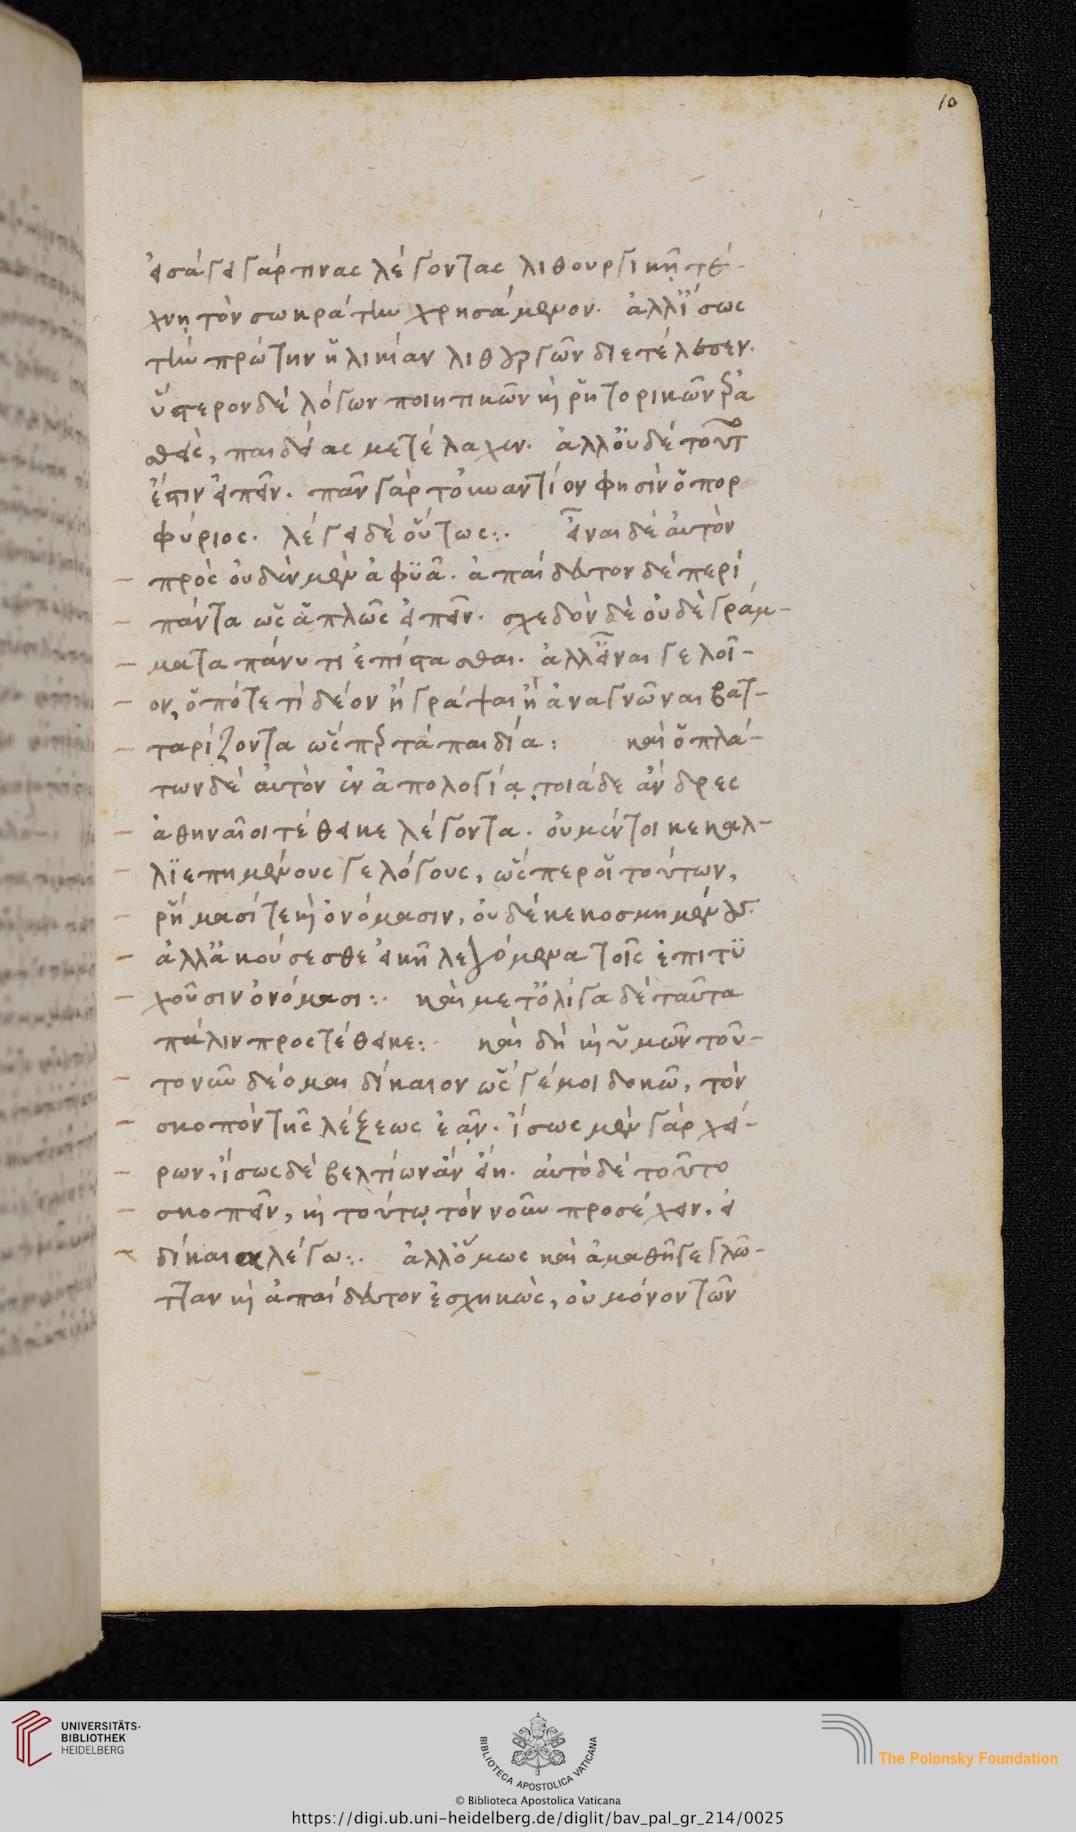 10
εἰσάγει γάρ τινας λέγοντας λιθουργικῇ τέ-
χνῃ τὸν σωκράτην χρησάμενον. ἀλλ' ἴσως
τὴν πρώτην ἡλικίαν λιθουργῶν διετέλεσεν.
ὕστερον δὲ λόγων ποιητικῶν καὶ ῥητορικῶν ἐρα
σθεὶς, παιδείας μετέλαχεν. ἀλλ' οὐδὲ τοῦτ'
ἔστιν εἰπεῖν. πᾶν γὰρ τοὐναντίον φησὶν ὁ πορ
φύριος. λέγει δὲ οὕτως:. εἶναι δὲ αὐτὸν
πρὸς οὐδὲν μὲν ἀφυᾶ. ἀπαίδευτον δὲ περὶ
πάντα ὡς ἁπλῶς εἰπεῖν. σχεδὸν δὲ οὐδὲ γράμ-
ματα πάνυ τι ἐπίστασθαι. ἀλλ' εἶναι γελοῖ-
ον, ὁπότε τὶ δέον ἢ γράψαι ἢ ἀναγνῶναι βατ-
ταρίζοντα ὥσπερ τὰ παιδία: καὶ ὁ πλά-
των δὲ αὐτὸν ἐν ἀπολογίᾳ, τοιάδε ἄνδρες
ἀθηναῖοι τέθεικε λέγοντα. οὐ μέντοι κεκαλ-
λιεπημένους γε λόγους, ὥσπερ οἱ τούτων,
ῥήμασί τε καὶ ὀνόμασιν, οὐδὲ κεκοσμημένους.
ἀλλ' ἀκούσεσθε εἰκῆ λεγόμενα τοῖς ἐπιτυ
χοῦσιν ὀνόμασι:. καὶ μετ' ὀλίγα δὲ ταῦτα
πάλιν προστέθεικε: καὶ δὴ καὶ ὑμῶν τοῦ-
το νῦν δέομαι δίκαιον ὥς γέ μοι δοκῶ, τὸν
σκοπὸν τῆς λέξεως ἐᾷν. ἴσως μὲν γὰρ χεί-
ρων, ἴσως δὲ βελτίων ἂν εἴη. αὐτὸ δὲ τοῦτο
σκοπεῖν, καὶ τούτῳ τὸν νοῦν προσέχειν. εἰ
δίκαια λέγω:. ἀλλ' ὅμως καὶ ἀμαθῆ γε γλῶ-
τταν καὶ ἀπαίδευτον ἐσχηκὼς, οὐ μόνον τῶν
UNIVERSITÄTS-
BIBLIOTHEK
HEIDELBERG
BIBLIOTECA APOSTOLICA VATICANA
The Polonsky Foundation
© Biblioteca Apostolica Vaticana
https://digi.ub.uni-heidelberg.de/diglit/bav_pal_gr_214/0025